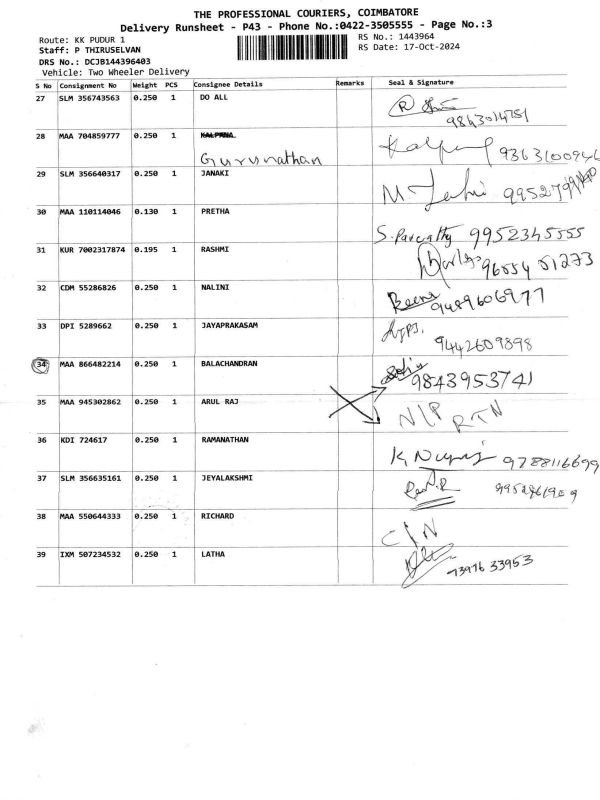 THE PROFESSIONAL COURIERS, COIMBATORE
Delivery Runsheet - P43 - Phone No.:0422-3505555 - Page No.:3
Route: KK PUDUR 1
RS No.: 1443964
Staff: P THIRUSELVAN
RS Date: 17-Oct-2024
DRS No.: DCJB144396403
Vehicle: Two Wheeler Delivery
S No Consignment No Weight PCS Consignee Details Remarks Seal & Signature
27 SLM 356743563 0.250 1 DO ALL
28 MAA 704859777 0.250 1 KALPANA 9363100946
Gurunathan
29 SLM 356640317 0.250 1 JANAKI
30 MAA 110114046 0.130 1 PRETHA S. Parvathy 9952345555
31 KUR 7002317874 0.195 1 RASHMI 9655451273
32 CDM 55286826 0.250 1 NALINI Reena 9489606977
33 DPI 5289662 0.250 1 JAYAPRAKASAM 9442609898
34 MAA 866482214 0.250 1 BALACHANDRAN 9843953741
35 MAA 945302862 0.250 1 ARUL RAJ N/P RTN
36 KDI 724617 0.250 1 RAMANATHAN 9788116699
37 SLM 356635161 0.250 1 JEYALAKSHMI
38 MAA 550644333 0.250 1 RICHARD C/N
39 IXM 507234532 0.250 1 LATHA 73976 33953